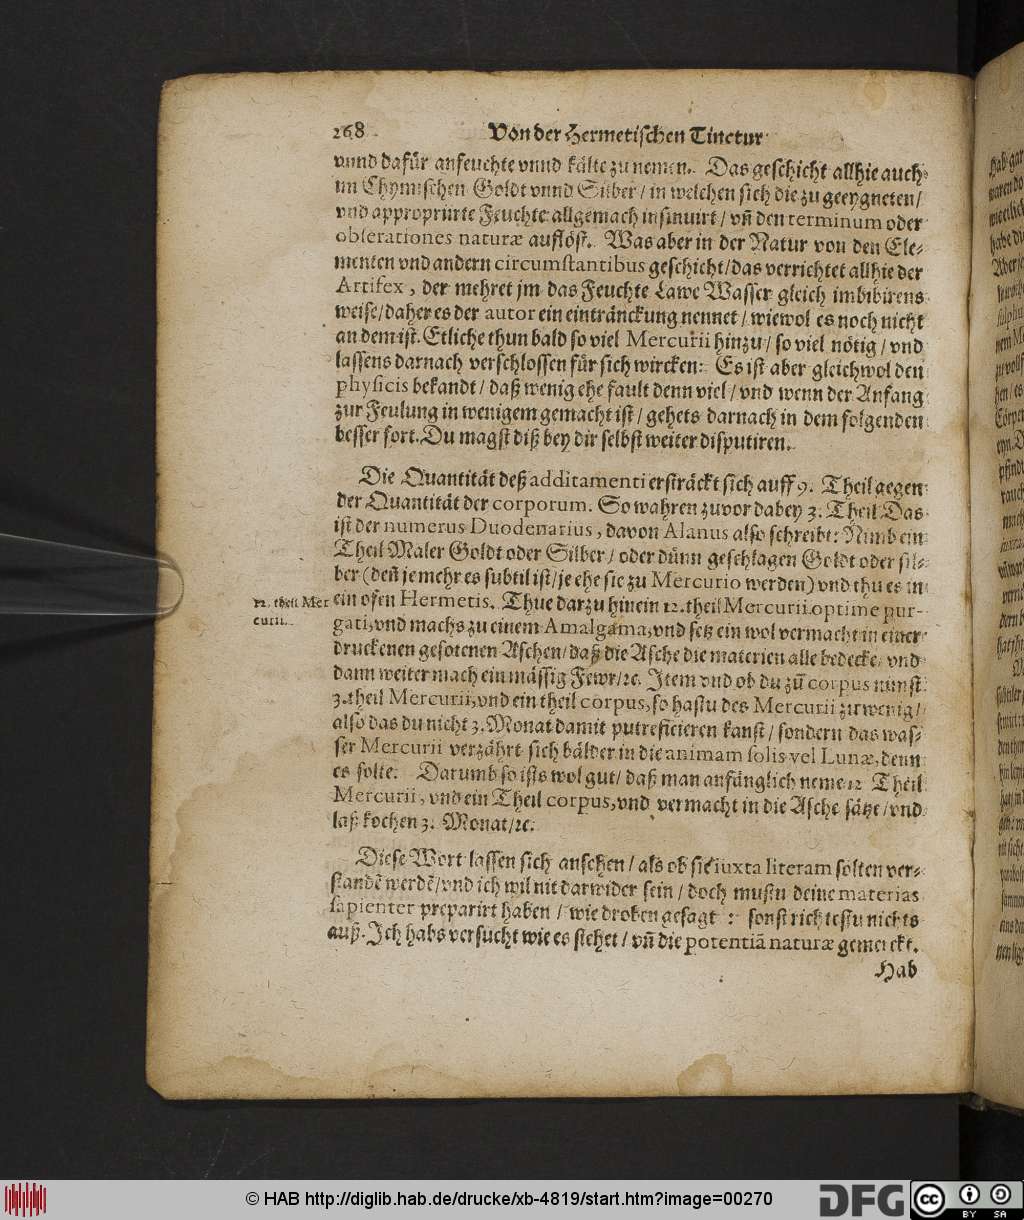 268 Von der Hermetischen Tinctur
vnnd dafür anfeuchte vnnd kälte zu nemen. Das geschicht allhie auch
im Chymischen Goldt vnnd Silber / in welchen sich die zu geeygneten /
vnd appropriirte Feuchte allgemach insinuirt / vñ den terminum oder
obserationes naturæ auflöst. Was aber in der Natur von den Ele-
menten vnd andern circumstantibus geschicht / das verrichtet allhie der
Artifex, der mehret jm das Feuchte Lawe Wasser gleich imbibirens
weise / daher es der autor ein einträncktung nennet / wiewol es noch nicht
an dem ist. Etliche thun bald so viel Mercurii hinzu / so viel nötig / vnd
lassens darnach verschlossen für sich wircken: Es ist aber gleichwol den
physicis bekandt / daß wenig ehe fault denn viel / vnd wenn der Anfang
zur Feulung in wenigem gemacht ist / gehets darnach in dem folgenden
besser fort. Du magst diß bey dir selbst weiter disputiren.
Die Quantität deß additamenti ersträckt sich auff 9. Theil gegen
der Quantität der corporum. So wahren zuvor dabey 3. Theil Das
ist der numerus Duodenarius, davon Alanus also schreibt: Nimb ein
Theil Maler Goldt oder Silber / oder dünn geschlagen Goldt oder sil-
ber (deñ je mehr es subtil ist / je ehe sie zu Mercurio werden) vnd thu es in
ein ofen Hermetis. Thue darzu hinein 12. theil Mercurii optime pur-
12. theil Mer
curii.
gati, vnd machs zu einem Amalgama, vnd setz ein wol vermacht in einer
druckenen gesotenen Aschen / daß die Asche die materien alle bedecke / vnd
dann weiter mach ein mässig Fewr / ꝛc. Item vnd ob du zũ corpus nimst
3. theil Mercurii, vnd ein theil corpus, so hastu des Mercurii zu wenig /
also das du nicht 3. Monat damit putreficieren kanst / sondern das was-
ser Mercurii verzährt sich bälder in die animam solis vel Lunæ, denn
es solte. Darumb so ists wol gut / daß man anfänglich neme 12 Theil
Mercurii, vnd ein Theil corpus, vnd vermacht in die Asche sätzt / vnd
laß kochen 3. Monat / ꝛc.
Diese Wort lassen sich ansehen / als ob sie iuxta literam solten ver-
standẽ werdẽ / vnd ich wil nit darwider sein / doch mustu deine materias
sapienter preparirt haben / wie droben gesagt : sonst richtestu nichts
auß. Ich habs versucht wie es stehet / vñ die potentiã naturæ gemerckt.
Hab
© HAB http://diglib.hab.de/drucke/xb-4819/start.htm?image=00270
DFG
cc BY SA